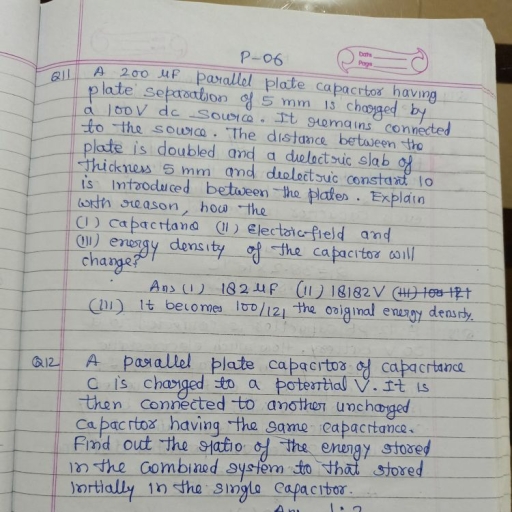 P-06
Date
Page
Q11 A 200 μF parallel plate capacitor having
plate separation of 5 mm is charged by
a 100V dc source. It remains connected
to the source. The distance between the
plate is doubled and a dielectric slab of
thickness 5 mm and dielectric constant 10
is introduced between the plates. Explain
with reason, how the
(I) capacitanc (II) Electric field and
(III) energy density of the capacitor will
change?
Ans (I) 182 μF (II) 18182 V (III) 100 121
(III) It becomes 100/121 the original energy density.
Q12 A parallel plate capacitor of capacitance
C is charged to a potential V. It is
then connected to another uncharged
capacitor having the same capacitance.
Find out the ratio of the energy stored
in the combined system to that stored
initially in the single capacitor.
Ans 1:2